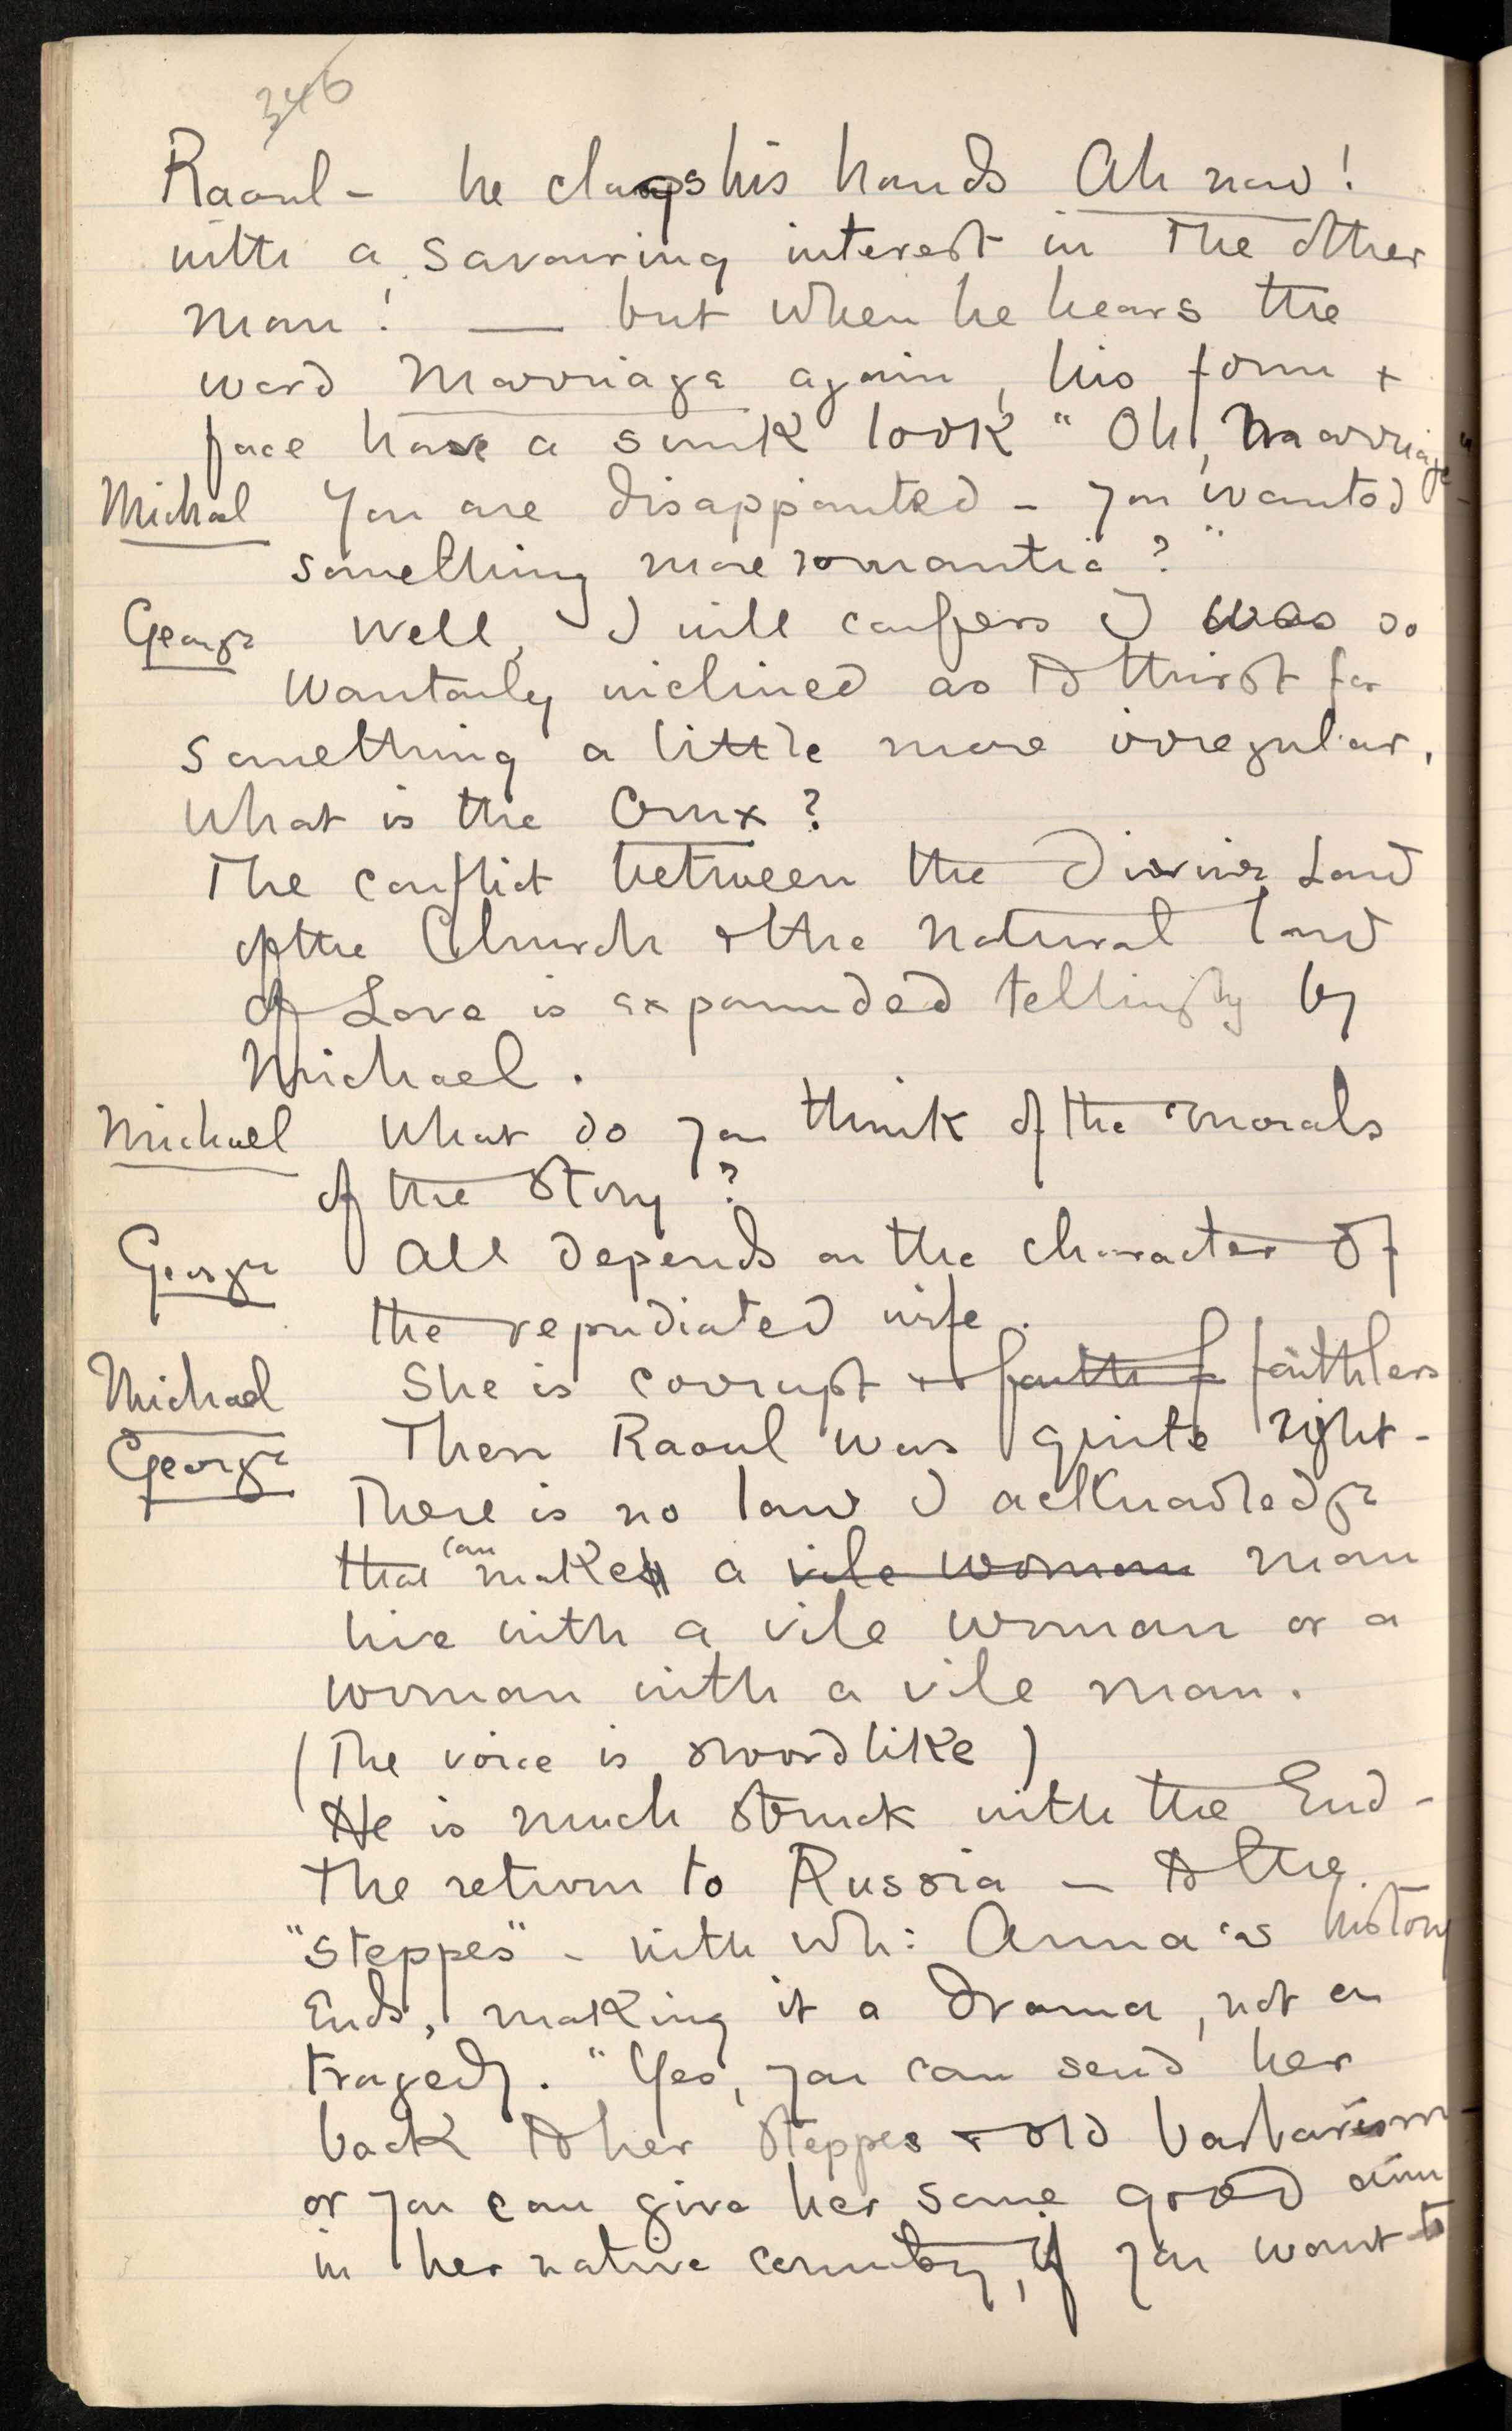 346
Raoul – he claps his hands Ah now!
with a savouring interest in the other
man! — but when he hears the
word Marriage again, his form +
face have a sunk look "Oh, Marriage"–
Michael You are disappointed – you wanted
something more romantic?"
George Well, I will confess I was so
wantonly inclined as to thirst for
something a little more irregular.
What is the Crux?
The conflict between the Divine Law
of the Church & the natural law
of Love is expounded tellingly by
Michael.
Michael What do you think of the morals
of the story?
George All depends on the character of
the repudiated wife.
Michael She is corrupt & faithf faithless
George Then Raoul was quite right –
There is no law I acknowledge
that can make a vile woman man
live with a vile woman or a
woman with a vile man.
(The voice is swordlike)
He is much struck with the End –
the return to Russia – to the
"steppes" – with wh: Anna's history
Ends, making it a drama, not a
tragedy. "Yes, you can send her
back to her steppes & old barbarism –
or you can give her some good aim
in her native country, if you want to